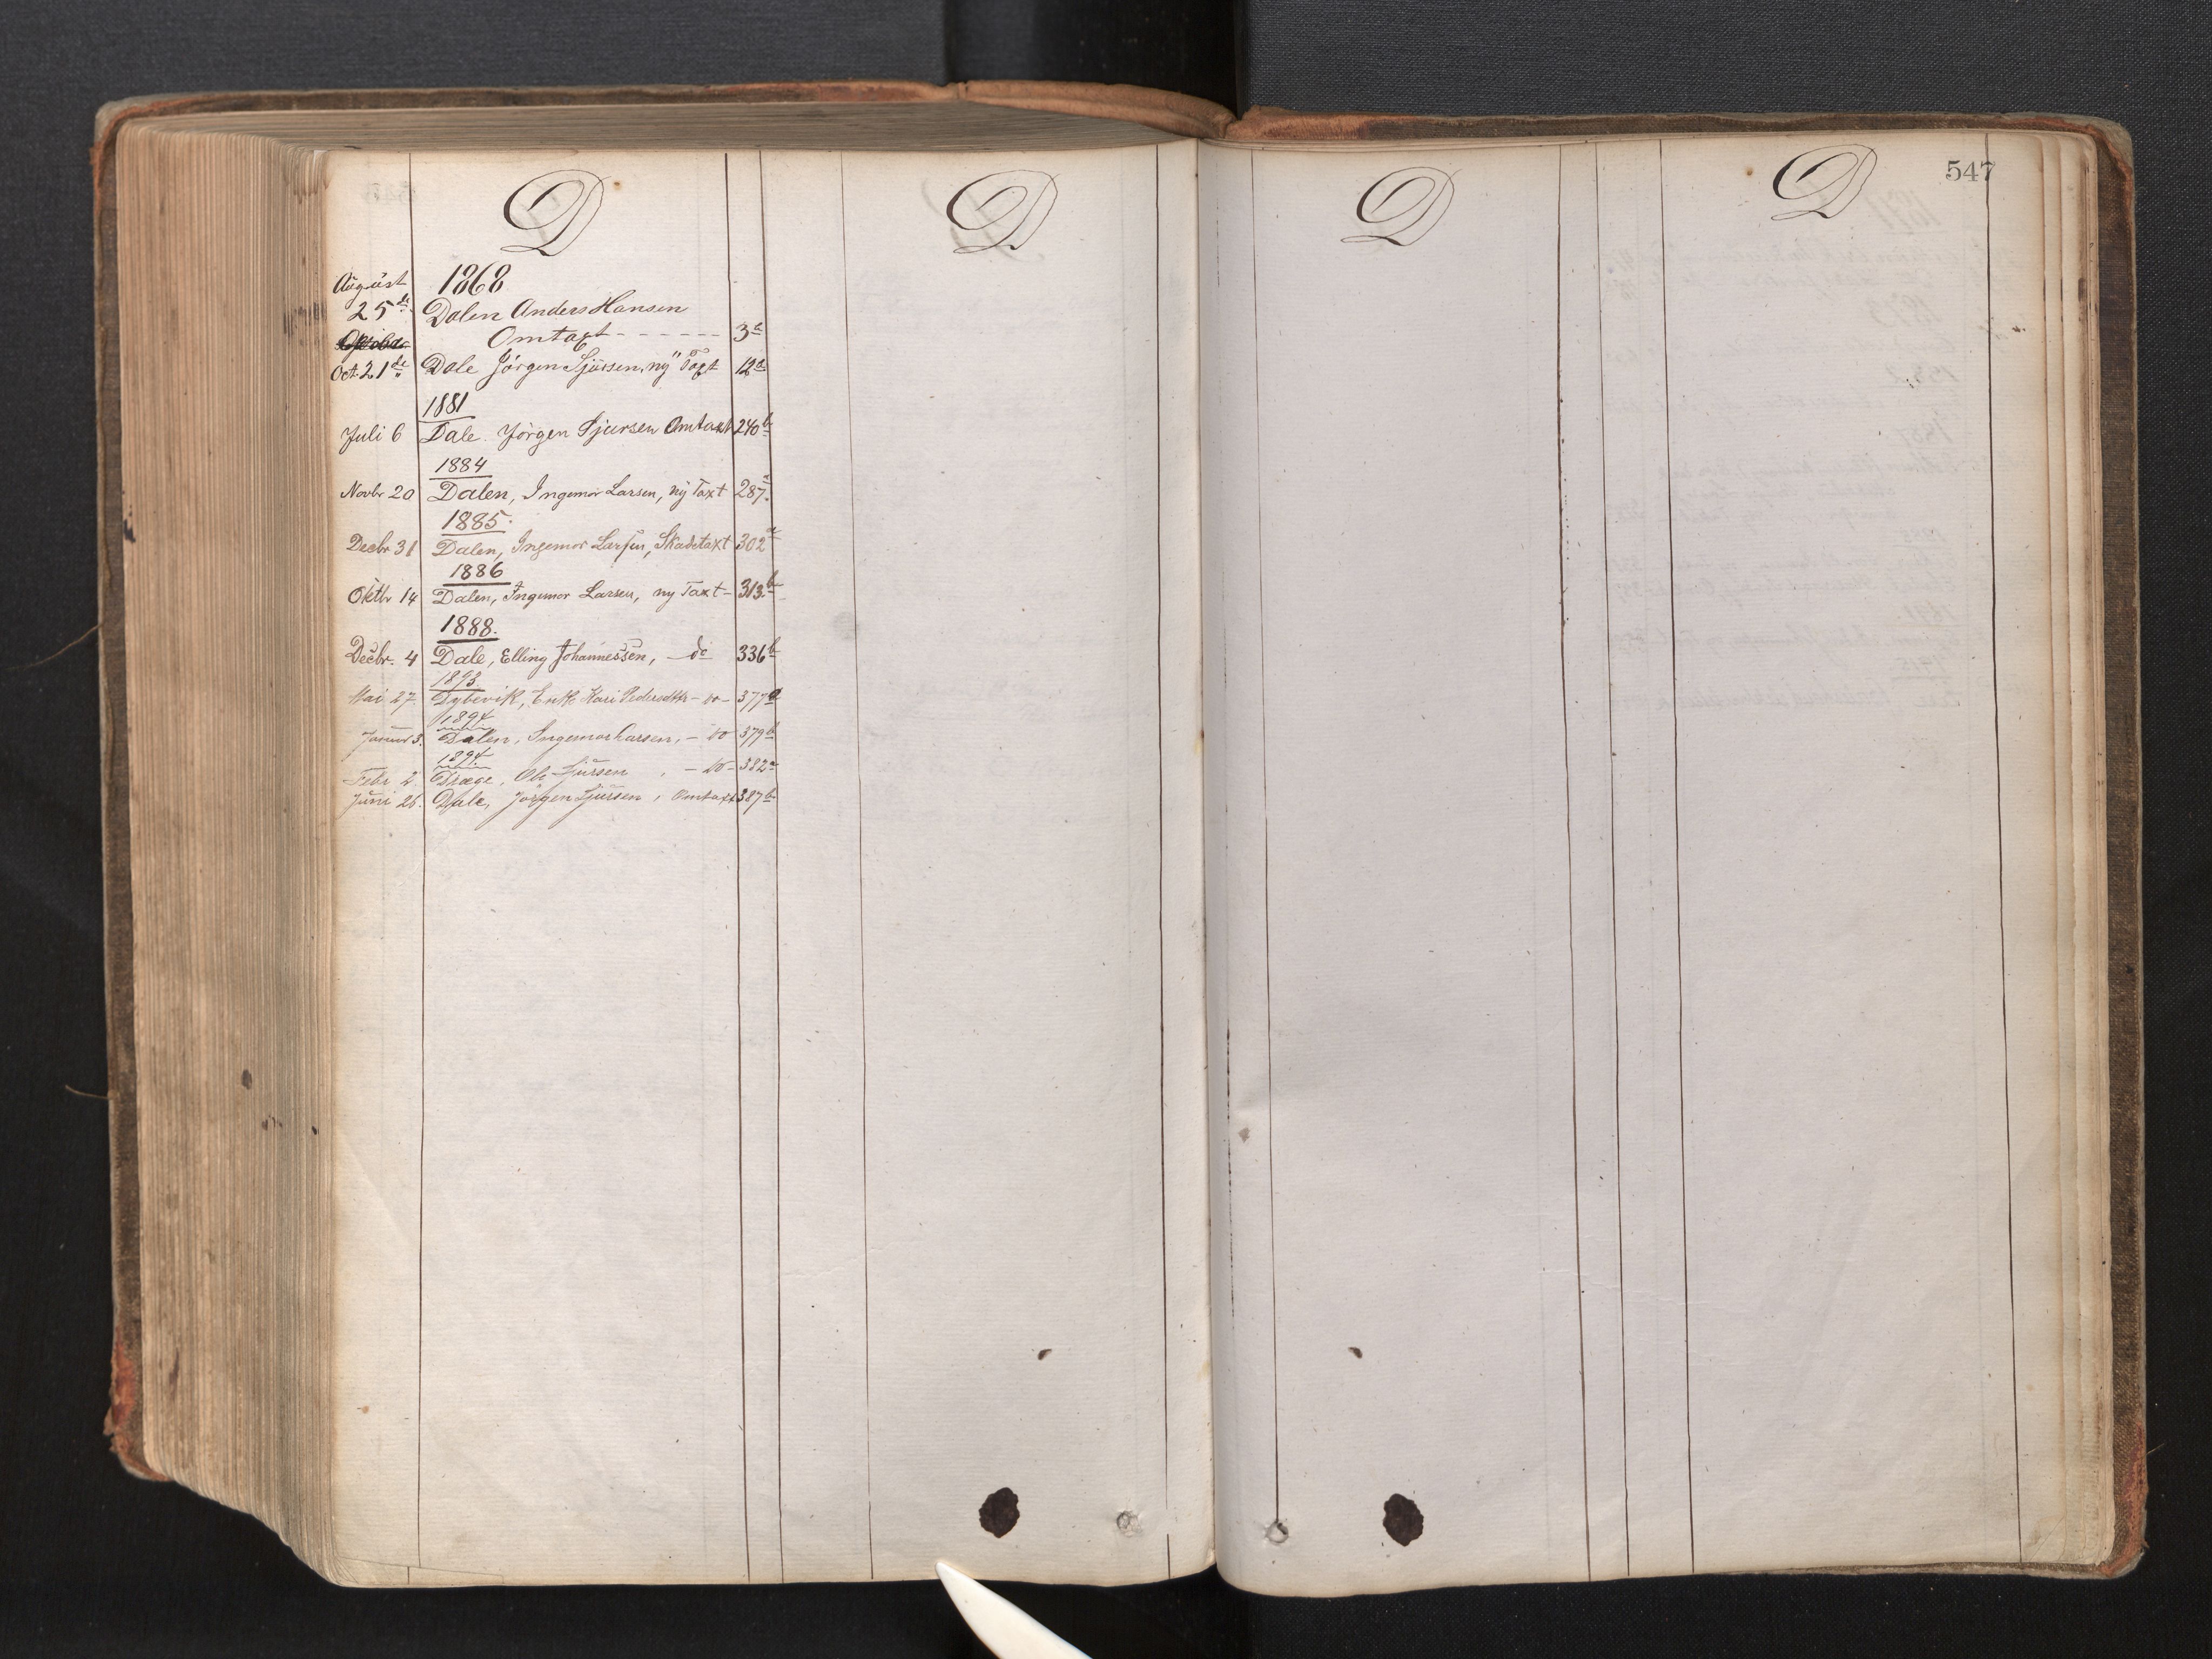 D
D
August 1868
25de Dalen Anders Hansen
Omtaxt - - - - - - 3a
Oct. 21de Dale Jörgen Sjursen, ny Taxt 12a
1881
Juli 6 Dale Jörgen Sjursen Omtaxt 240b
1884
Novbr 20 Dalen, Ingemor Larsen, ny Taxt 287a
1885.
Decbr 31 Dalen, Ingemor Larsen, Skadetaxt 302a
1886
Oktbr 14 Dalen, Ingemor Larsen, ny Taxt - 313b
1888.
Decbr. 4 Dale, Elling Johannessen, - do 336b
1893
Mai 27. Dybevik, Enke Kari Pedersdttr - do - 377a
1894
Januar 3. Dalen, Ingemor Larsen, - do 379b
1894
Febr 2. Ole Sjursen, - do - 382a
Juni 26. Dale, Jörgen Sjursen, Omtaxt 387b
D
D
547